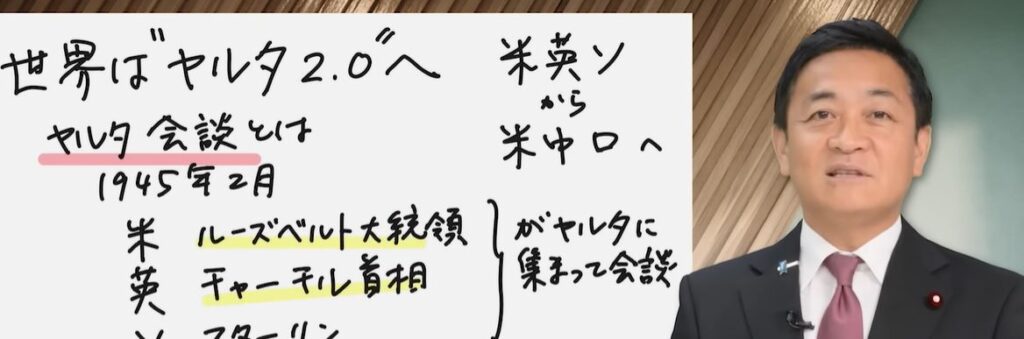 世界は"ヤルタ2.0"へ
ヤルタ会談とは
1945年2月
米 ルーズベルト大統領
英 チャーチル首相
ソ スターリン
がヤルタに
集まって会談
米英ソ
から
米中ロへ